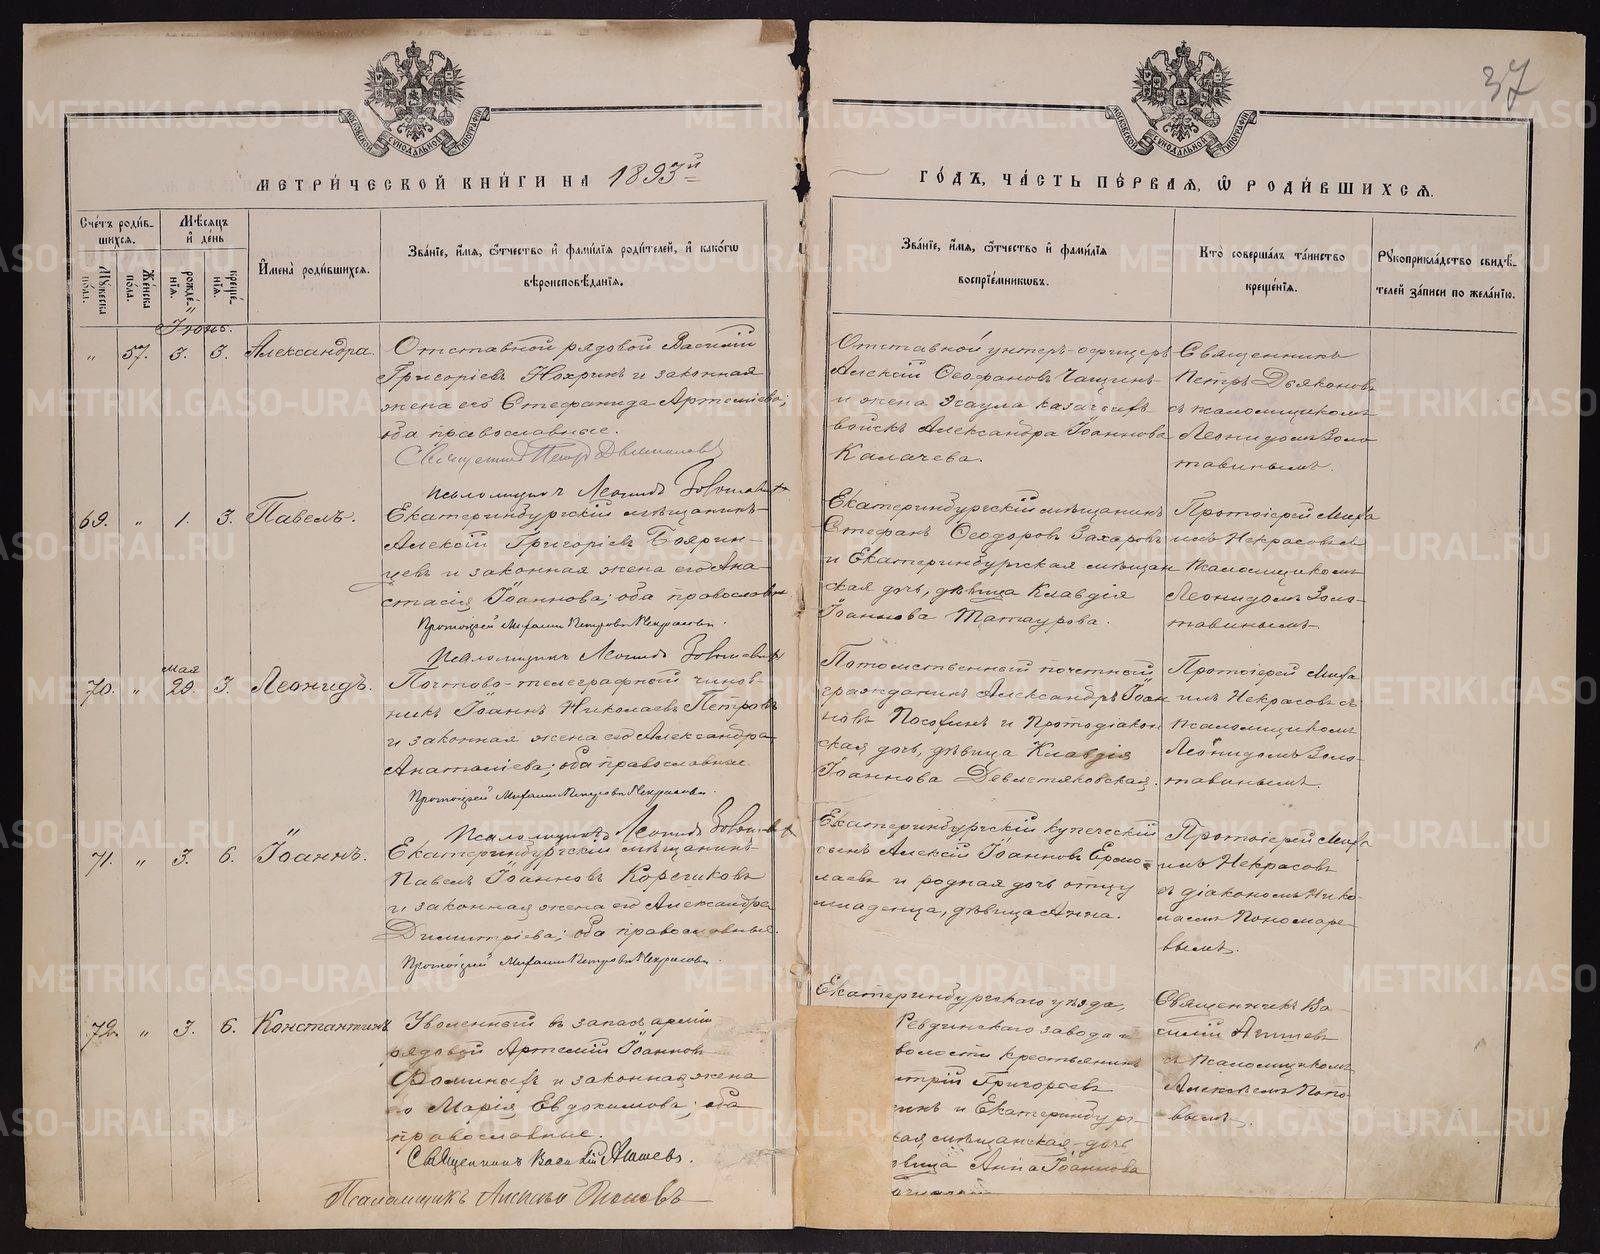 37
МОСКОВСКОЙ СѴНОДАЛЬНОЙ ТИПОГРАФІИ
МОСКОВСКОЙ СѴНОДАЛЬНОЙ ТИПОГРАФІИ
МЕТРИ́ЧЕСКОЙ КНИ́ГИ НА 1893й
ГО́ДЪ, ЧА́СТЬ ПЕ́РВАЯ, Ѡ РОДИ́ВШИХСЯ.
Сче́тъ роди́вшихся.
Мꙋжеска по́ла.
Же́нска по́ла.
Мѣ́сяцъ и де́нь
рожде́нїя.
креще́нїя.
И҆мена̀ роди́вшихся.
Зва́нїе, и҆́мя, ѻ҆́тчество и҆ фами́лїя роди́телей, и҆ како́гѡ
вѣроисповѣ́данїя.
Зва́нїе, и҆́мя, ѻ҆́тчество и҆ фами́лїя
воспрїе́мникѡвъ.
Кто̀ соверша́лъ та́инство
креще́нїя.
Рꙋкоприкла́дство свидѣ́-
телей за́писи по жела́нїю.
Іюнь.
" 57. 3. 3. Александра.
Отставной рядовой Василій
Григоріевъ Нохринъ и законная
жена его Стефанида Артеміева;
оба православные.
Священникъ Петръ Дьяконовъ
Псаломщикъ Леонидъ Золотавинъ
Отставной унтеръ-офицеръ
Алексій Ѳеофановъ Чащинъ
и жена эсаула казачьихъ
войскъ Александра Іоаннова
Калачева.
Священникъ
Петръ Дьяконовъ
съ псаломщикомъ
Леонидомъ Золо
тавинымъ.
69. " 1. 3. Павелъ.
Екатеринбургскій мѣщанинъ
Алексій Григоріевъ Боярин-
цевъ и законная жена его Ана
стасія Іоаннова; оба православные
Протоіерей Михаилъ Петровъ Некрасовъ.
Псаломщикъ Леонидъ Золотавинъ
Екатеринбургскій мѣщанинъ
Стефанъ Ѳеодоровъ Захаровъ
и Екатеринбургская мѣщан
ская дочь, дѣвица Клавдія
Іоаннова Татаурова.
Протоіерей Миха
илъ Некрасовъ съ
псаломщикомъ
Леонидомъ Золо-
тавинымъ
70. " мая 20. 3. Леонидъ.
Почтово-телеграфный чинов-
никъ Іоаннъ Николаевъ Петровъ
и законная жена его Александра
Анатоліева; оба православные
Протоіерей Михаилъ Петровъ Некрасовъ.
Псаломщикъ Леонидъ Золотавинъ
Потомственный почетный
гражданинъ Александръ Іоан
новъ и Протодіакон
ская дочь, дѣвица Клавдія
Іоаннова Девлетяковская.
Протоіерей Миха
илъ Некрасовъ съ
псаломщикомъ
Леонидомъ Золо-
тавинымъ.
71. " 3. 6. Іоаннъ.
Екатеринбургскій мѣщанинъ
Павелъ Іоанновъ Корешковъ
и законная жена его Александра
Димитріева; оба православные.
Протоіерей Михаилъ Петровъ Некрасовъ.
Екатеринбургскій купеческій
сынъ Алексій Іоанновъ Ермо-
лаевъ и родная дочь отцу
младенца, дѣвица Анна.
Протоіерей Миха
илъ Некрасовъ
съ діакономъ Нико-
лаемъ Пономаре-
вымъ.
72. " 3. 6. Константинъ
Уволенный въ запасъ арміи
рядовой Артемій Іоанновъ
Фоминыхъ и законная жена
его Марія Евдокимова; оба
православные.
Священникъ Василій Агишевъ.
Псаломщикъ Алексѣй Поповъ
Екатеринбургскаго уѣзда,
Ревдинскаго завода и
волости крестьянинъ
итрій Григорьевъ
инъ и Екатеринбург-
ская мѣщанская дочь
вица Анна Іоаннова
Священникъ Ва
силій Агишевъ
съ псаломщикомъ
Алексѣемъ Попо-
вымъ.
METRIKI.GASO-URAL.RU